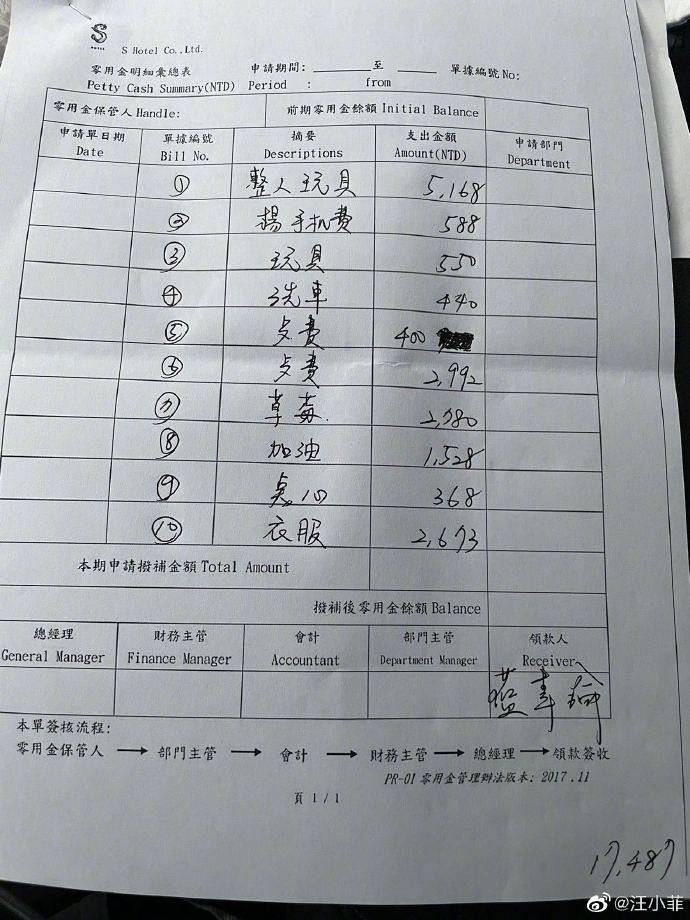 S
S Hotel Co.,Ltd.
零用金明細彙總表 申請期間: 至 單據編號 No:
Petty Cash Summary(NTD) Period : from
零用金保管人 Handle: 前期零用金餘額 Initial Balance
申請單日期 單據編號 摘要 支出金額 申請部門
Date Bill No. Descriptions Amount(NTD) Department
① 整人玩具 5,168
② 楊手机費 588
③ 玩具 550
④ 洗車 440
⑤ 費 400
⑥ 費 2,992
⑦ 草莓 2,780
⑧ 加油 1,528
⑨ 点心 368
⑩ 衣服 2,673
本期申請撥補金額 Total Amount
撥補後零用金餘額 Balance
總經理 財務主管 會計 部門主管 領款人
General Manager Finance Manager Accountant Department Manager Receiver
本單簽核流程:
零用金保管人 → 部門主管 → 會計 → 財務主管 → 總經理 → 領款簽收
PR-01 零用金管理辦法版本: 2017.11
頁 1 / 1
17,487
@汪小菲